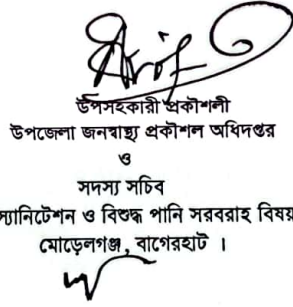 উপসহকারী প্রকৌশলী
উপজেলা জনস্বাস্থ্য প্রকৌশল অধিদপ্তর
ও
সদস্য সচিব
স্যানিটেশন ও বিশুদ্ধ পানি সরবরাহ বিষয়
মোড়েলগঞ্জ, বাগেরহাট ।